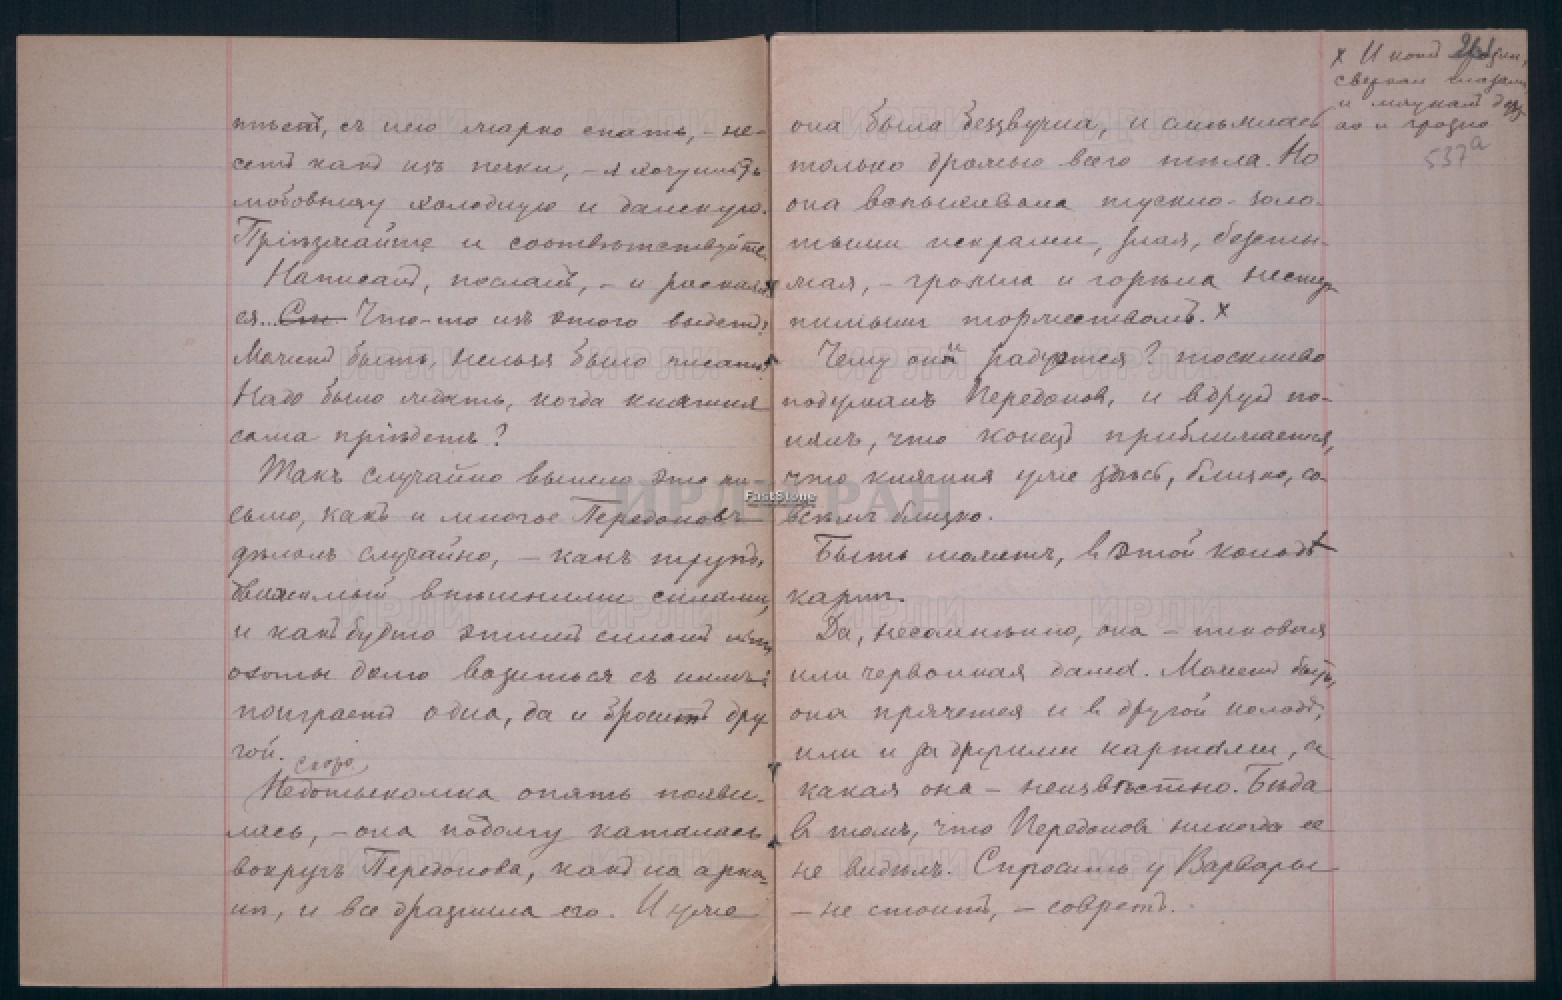 пѣетъ, съ нею жарко спать, – не-
сетъ какъ изъ печки, – я хочу имѣть
любовницу холодную и далекую.
Пріѣзжайте и соотвѣтствуйте.
Написалъ, послалъ, – и раскаял-
ся... Что-то изъ этого выйдетъ?
Можетъ быть, нельзя было писать?
Надо было ждать, когда княгиня
сама пріѣдетъ?
Такъ случайно вышло это пи-
сьмо, какъ и многое Передоновъ
дѣлалъ случайно, – какъ трупъ,
движимый внѣшними силами,
и какъ будто этимъ силамъ нѣтъ
охоты долго возиться съ нимъ:
поиграетъ одна, да и броситъ дру-
гой.
скоро
Недотыкомка опять появи-
лась, – она подолгу каталась
вокругъ Передонова, какъ на арка-
нѣ, и все дразнила его. И уже
она была беззвучна, и смѣялась
только дрожью всего тѣла. Но
она вспыхивала тускло-золо-
тыми искрами, злая, безсты-
жая, – грозила и горѣла нестер-
пимымъ торжествомъ. х
Чему онѣ радуются? тоскливо
подумалъ Передоновъ, и вдругъ по-
нялъ, что конецъ приближается,
что княгиня уже здѣсь, близко, со-
всѣмъ близко.
Быть можетъ, въ этой колодѣ
картъ.
Да, несомнѣнно, она – пиковая
или червонная дама. Можетъ быть,
она прячется и въ другой колодѣ,
или и за другими картами, а
какая она – неизвѣстно. Бѣда
въ томъ, что Передоновъ никогда ее
не видѣлъ. Спросить у Варвары
– не стоитъ, – совретъ.
х И котъ
сверкалъ глазами
и мяукалъ
но и грозно
537а
ИРЛИ РАН
FastStone